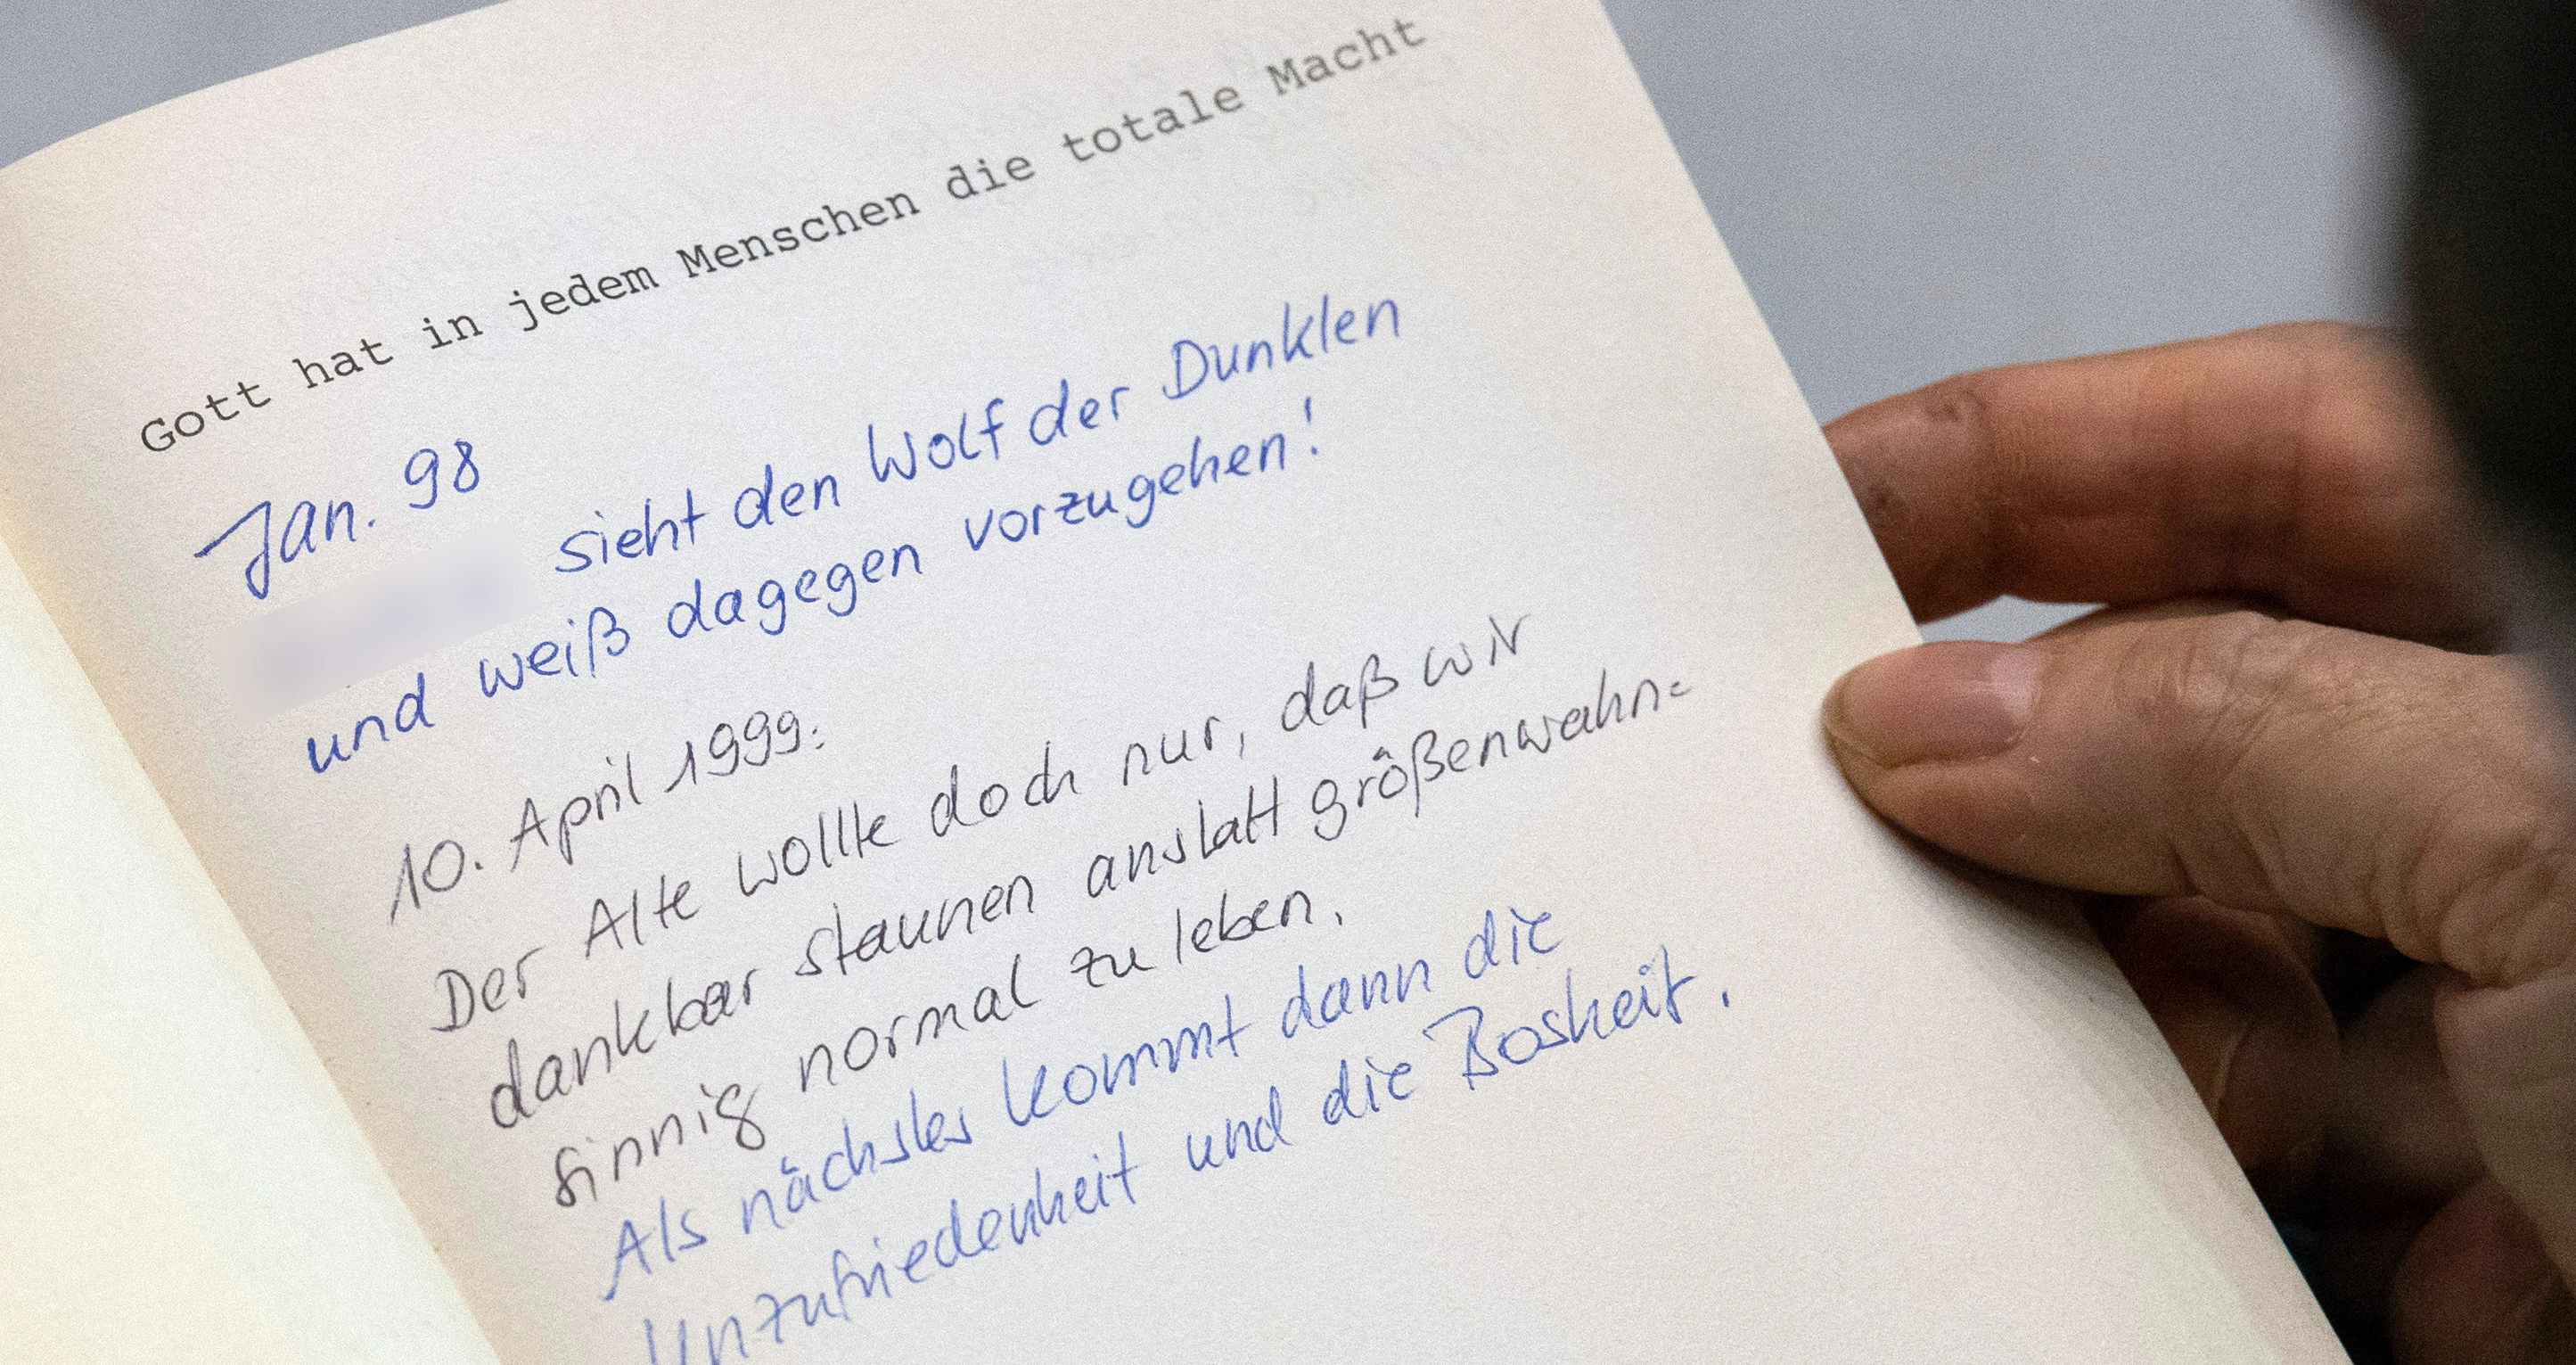 Gott hat in jedem Menschen die totale Macht
Jan. 98
sieht den Wolf der Dunklen
und weiß dagegen vorzugehen!
10. April 1999:
Der Alte wollte doch nur, daß wir
dankbar staunen anstatt größenwahn=
sinnig normal zu leben.
Als nächstes kommt dann die
Unzufriedenheit und die Bosheit.